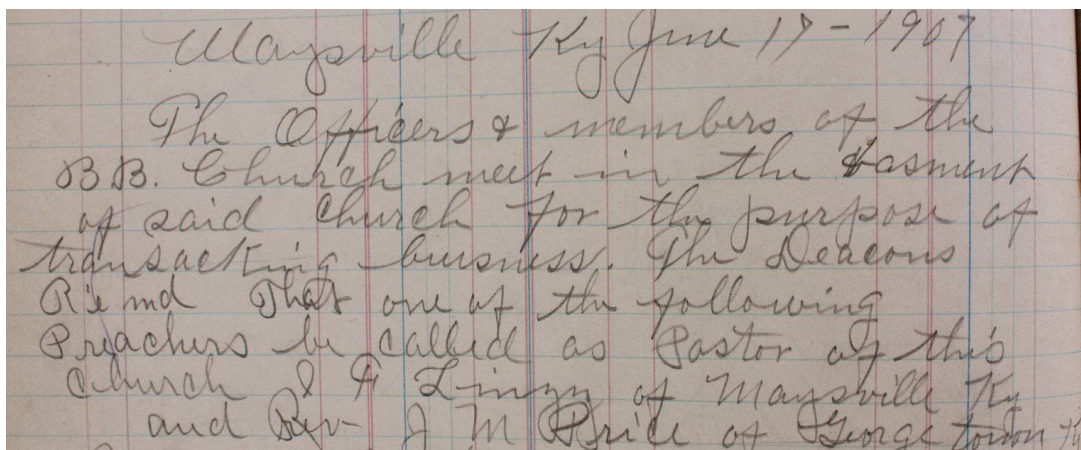 Maysville Ky June 17-1907
The Officers & members of the
BB. Church meet in the basment
of said church for the purpose of
transacking buisness. The Deacons
That one of the following
Preachers be called as Pastor of this
Church of Maysville Ky
and Rev- J M Price of Georgetown